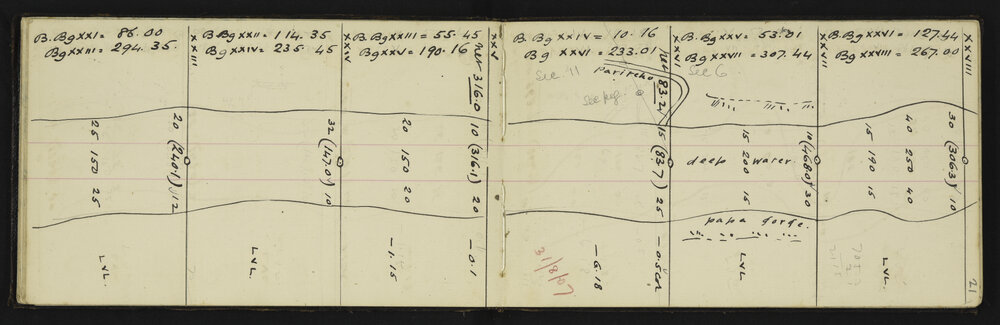 B. Bg XXI = 86.00
Bg XXIII = 294.35.
XXIII
B. Bg XXII = 114.35
Bg XXIV = 235 45
XXIV
B. Bg XXIII = 55.45
Bg XXV = 190.16
XXV
316.0
25 150 25
20 (240.1) 12
LVL.
32 (147.0) 10
LVL
20 150 20
- 1.15
10 (316.1) 20
- 0.1
B. Bg XXIV = 10.16
Bg XXVI = 233.01
XXVI
B. Bg XXV = 53.01
Bg XXVII = 307.44
XXVII
B. Bg XXVI = 127.44
Bg XXVIII = 267.00
XXVIII
Sec. 11
Sec 6
83.2
15 (83.7) 25
- 6.18
31/8/07
15 200 15
deep water.
papa gorge.
LVL
10 (468.0) 30
15 190 15
40 250 40
30 (306.3) 10
LVL.
21